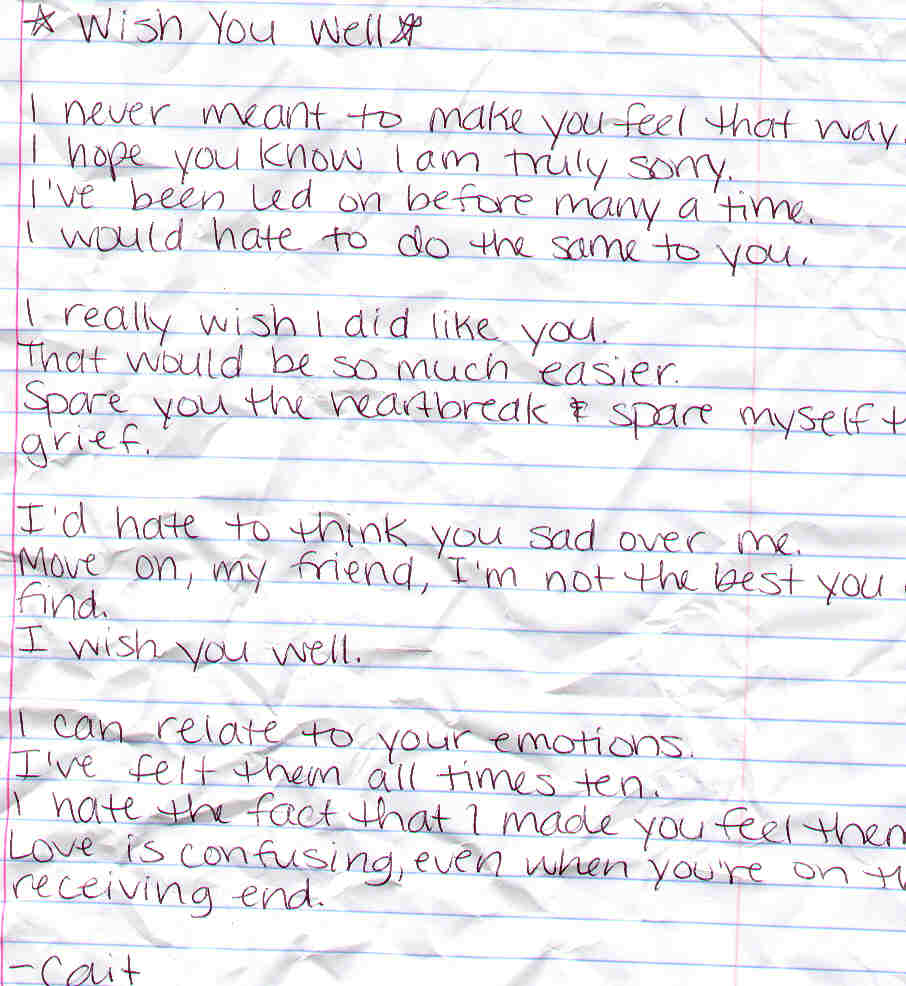 ☆ Wish You Well☆
I never meant to make you feel that way.
I hope you know I am truly sorry.
I've been led on before many a time.
I would hate to do the same to you.
I really wish I did like you.
That would be so much easier.
Spare you the heartbreak & spare myself t
grief.
I'd hate to think you sad over me.
Move on, my friend, I'm not the best you
find.
I wish you well. —
I can relate to your emotions.
I've felt them all times ten.
I hate the fact that I made you feel them
Love is confusing, even when you're on th
receiving end.
-Cait